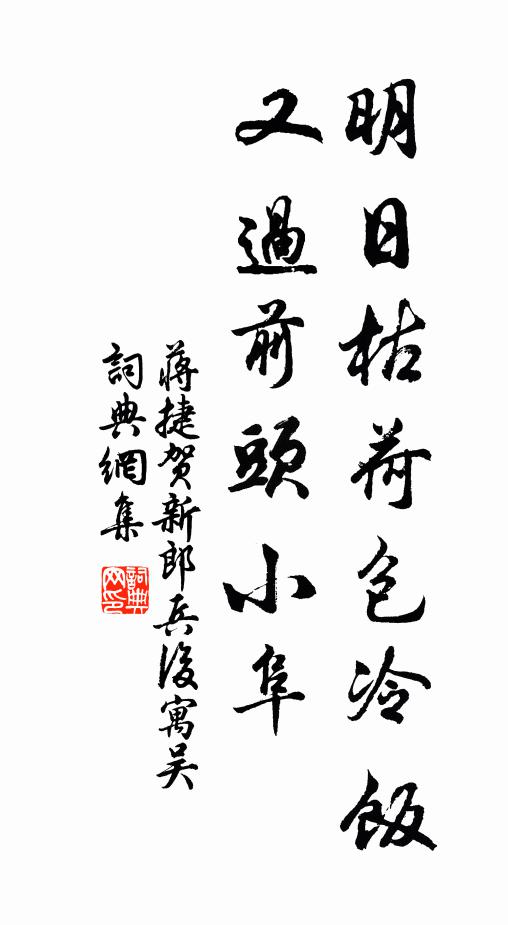 明日枯荷包冷飯
又過前頭小阜
蔣捷賀新郎兵後寓吴
詞典網集
詞典
网印